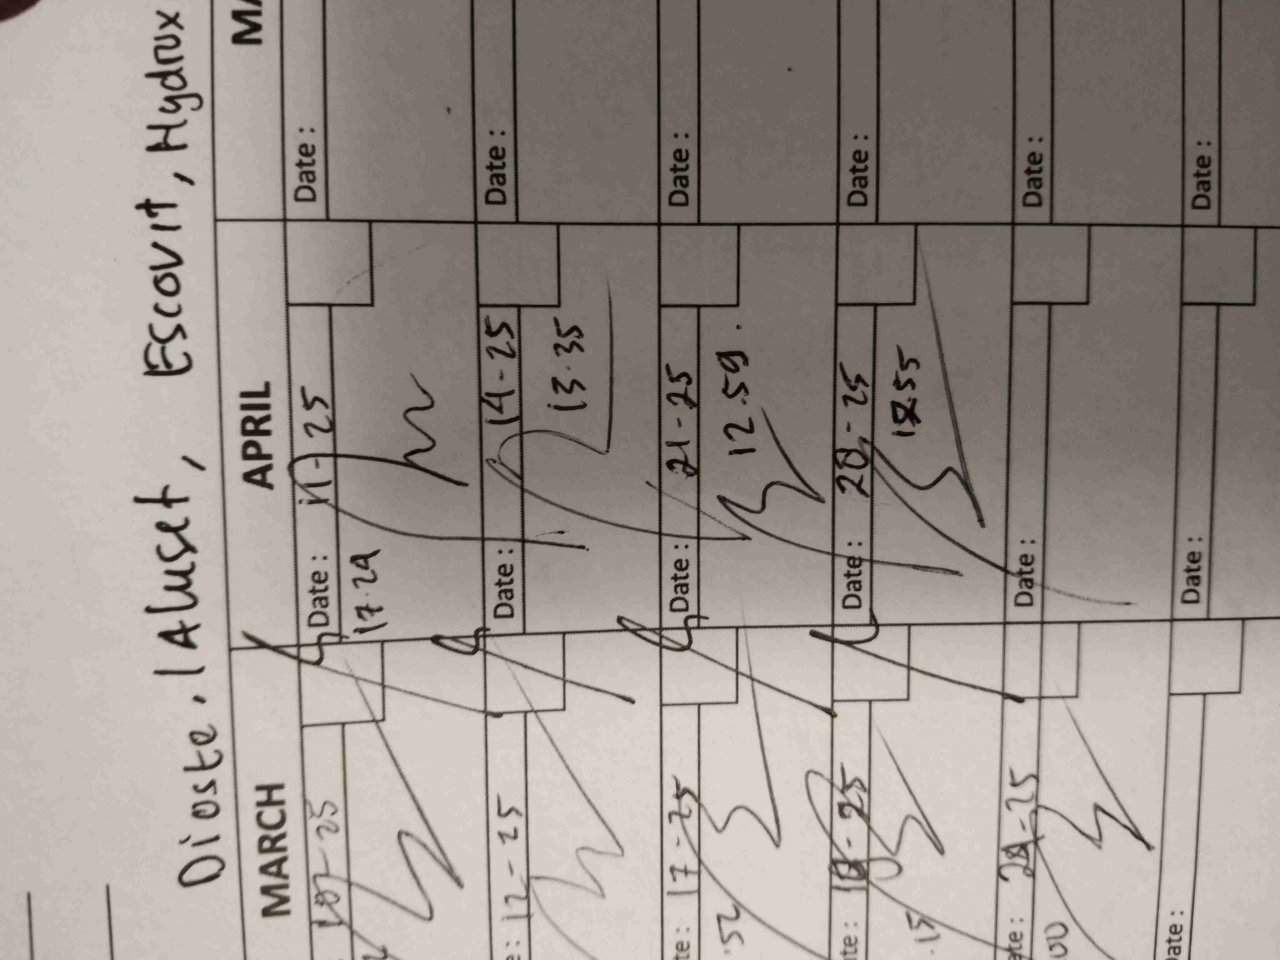 Dioste. 1Aluset, Escovit, Hydrox
MARCH APRIL MA
Date: 11-25 Date:
17.29
12-25 Date: 14-25 Date:
13.35
te: 17-25 Date: 21-25 Date:
.52 12.59.
te: Date: 28-25 Date:
.15
te: -25 Date: Date:
00
ate: Date: Date: